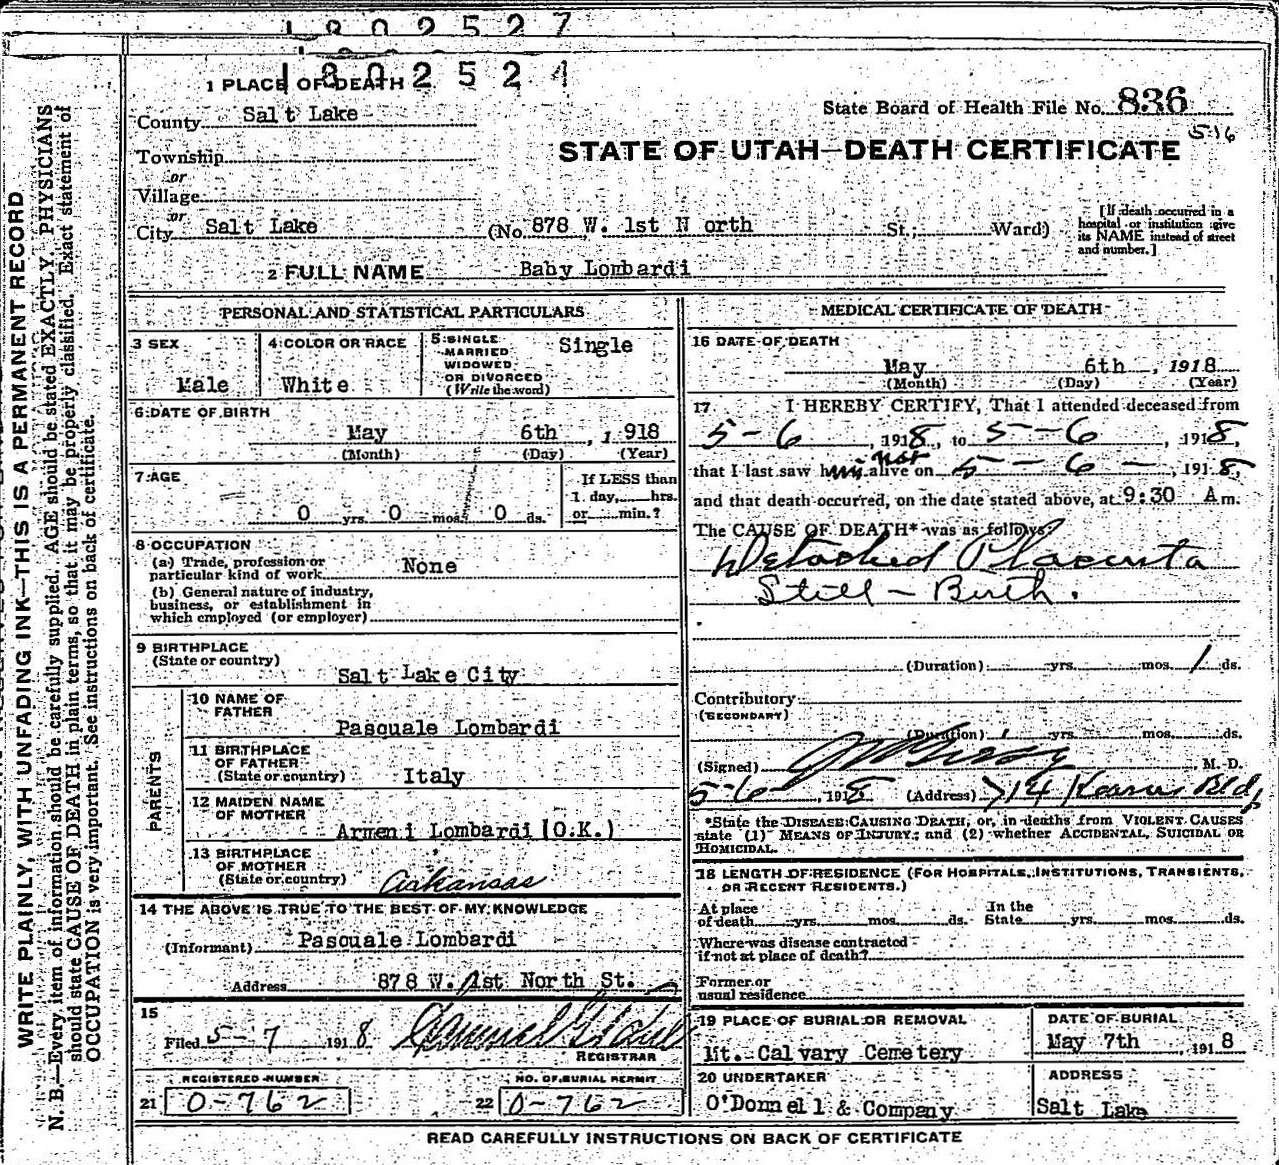 1802527
1802524
1 PLACE OF DEATH
State Board of Health File No. 836
County Salt Lake
516
STATE OF UTAH—DEATH CERTIFICATE
Township
or
Village
or
City Salt Lake (No. 878 W. 1st North St.; Ward)
[If death occurred in a
hospital or institution give
its NAME instead of street
and number.]
2 FULL NAME Baby Lombardi
PERSONAL AND STATISTICAL PARTICULARS
3 SEX
Male
4 COLOR OR RACE
White
5 SINGLE
MARRIED
WIDOWED
OR DIVORCED
(Write the word)
Single
6 DATE OF BIRTH
May 6th, 1918
(Month) (Day) (Year)
7 AGE
0 yrs. 0 mos. 0 ds.
If LESS than
1 day, hrs.
or min.?
8 OCCUPATION
(a) Trade, profession or
particular kind of work None
(b) General nature of industry,
business, or establishment in
which employed (or employer)
9 BIRTHPLACE
(State or country)
Salt Lake City
PARENTS
10 NAME OF
FATHER
Pasquale Lombardi
11 BIRTHPLACE
OF FATHER
(State or country) Italy
12 MAIDEN NAME
OF MOTHER
Armeni Lombardi (O.K.)
13 BIRTHPLACE
OF MOTHER
(State or country) Arkansas
14 THE ABOVE IS TRUE TO THE BEST OF MY KNOWLEDGE
(Informant) Pasquale Lombardi
Address 878 W. 1st North St.
15
Filed 5-7 1918
REGISTRAR
REGISTERED NUMBER
21 0-762
NO. OF BURIAL PERMIT
22 0-762
MEDICAL CERTIFICATE OF DEATH
16 DATE OF DEATH
May 6th, 1918
(Month) (Day) (Year)
17 I HEREBY CERTIFY, That I attended deceased from
5-6, 1918, to 5-6, 1918,
that I last saw him not alive on 5-6-, 1918,
and that death occurred, on the date stated above, at 9:30 A m.
The CAUSE OF DEATH* was as follows:
Detached Placenta
Still-Birth.
(Duration) yrs. mos. 1 ds.
Contributory
(SECONDARY)
(Duration) yrs. mos. ds.
(Signed) M. D.
5-6, 1918 (Address) 714 Kearns Bldg
*State the DISEASE CAUSING DEATH, or, in deaths from VIOLENT CAUSES
state (1) MEANS OF INJURY; and (2) whether ACCIDENTAL, SUICIDAL OR
HOMICIDAL.
18 LENGTH OF RESIDENCE (FOR HOSPITALS, INSTITUTIONS, TRANSIENTS,
OR RECENT RESIDENTS.)
At place
of death yrs. mos. ds.
In the
State yrs. mos. ds.
Where was disease contracted
if not at place of death?
Former or
usual residence
19 PLACE OF BURIAL OR REMOVAL
Mt. Calvary Cemetery
DATE OF BURIAL
May 7th, 1918
20 UNDERTAKER
O'Donnell & Company
ADDRESS
Salt Lake
READ CAREFULLY INSTRUCTIONS ON BACK OF CERTIFICATE
WRITE PLAINLY, WITH UNFADING INK—THIS IS A PERMANENT RECORD
N. B.—Every item of information should be carefully supplied. AGE should be stated EXACTLY. PHYSICIANS
should state CAUSE OF DEATH in plain terms, so that it may be properly classified. Exact statement of
OCCUPATION is very important. See instructions on back of certificate.